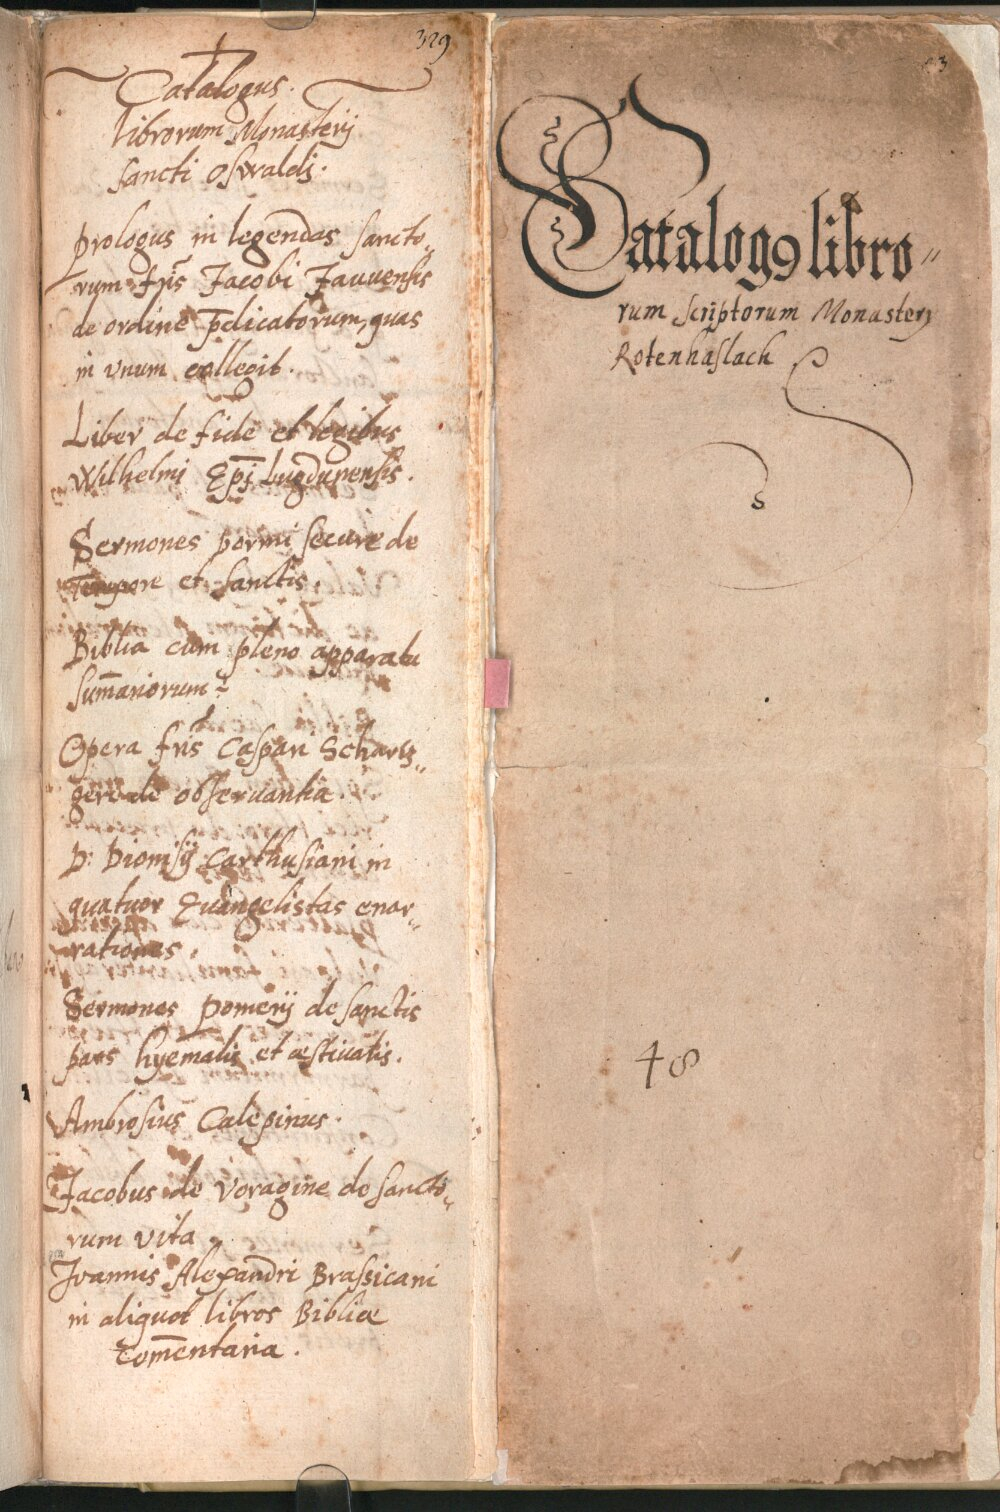 329
Catalogus
librorum Monasterij
sancti oswaldi.
prologus in legendas sancto„
rum fr̄is Jacobi Januensis
de ordine p̄dicatorum, quas
in unum collegit.
Liber de fide et legibus
Wilhelmi Ep̄i Lugdunensis.
Sermones dormi secure de
Tempore et sanctis.
Biblia cum pleno apparatu
sum̄ariorum
Opera fr̄is Caspari Schatz„
geri de observantia.
D: Dionisij Carthusiani in
quatuor Evangelistas enar„
rationes.
Sermones pomerij de sanctis
pars hyemalis et æstivalis.
Ambrosius Calepinus.
Jacobus de Voragine de sancto„
rum vita
Joannis Alexandri Brassicani
in aliquot libros Bibliæ
Com̄entaria.
Catalog9 libro„
rum scriptorum Monasterij
Rotenhaslach
48